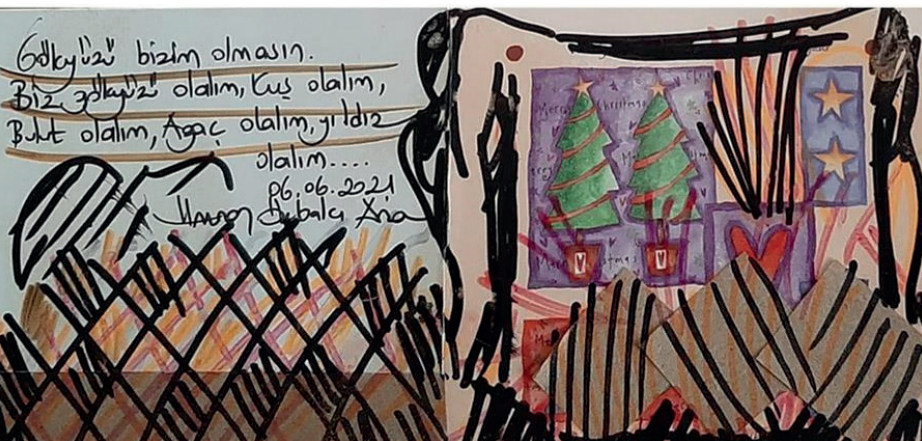 Gökyüzü bizim olmasın.
Biz gökyüzü olalım, kuş olalım,
Bulut olalım, Ağaç olalım, yıldız
olalım....
06.06.2021
Merry Christmas